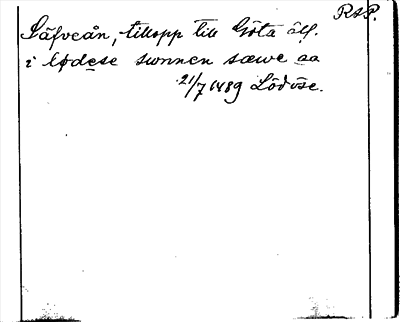 RAP.
Säfveån, tillopp till Göta älf.
i lødese sunnen sæwe aa
21/7 1489 Lödöse.